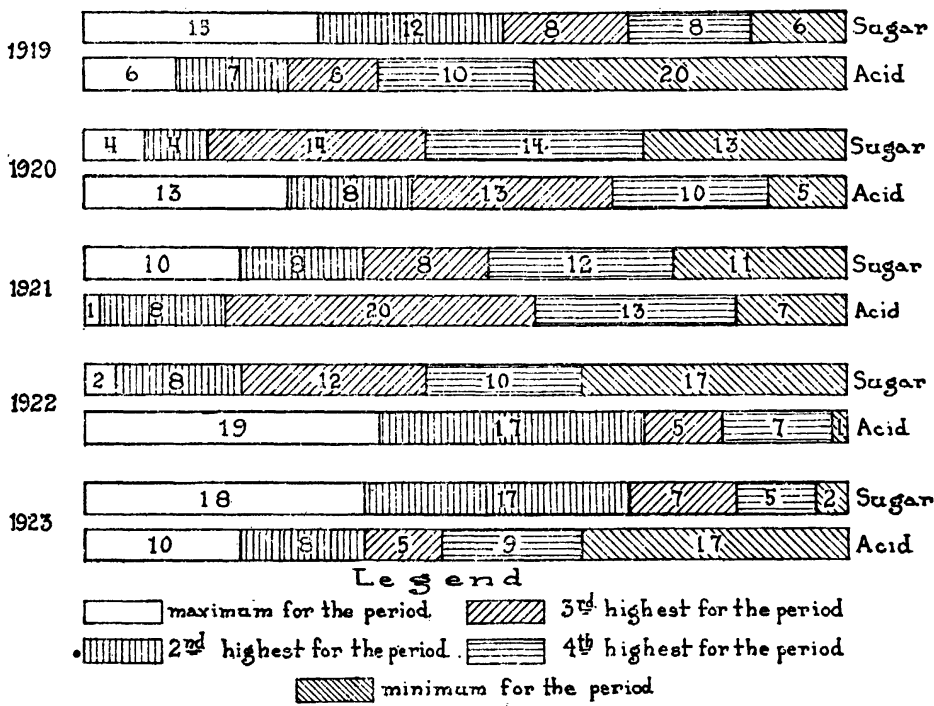 15 12 8 8 6 Sugar
1919
6 7 6 10 20 Acid
4 4 14 14 13 Sugar
1920
13 8 13 10 5 Acid
10 8 8 12 11 Sugar
1921
1 8 20 13 7 Acid
2 8 12 10 17 Sugar
1922
19 17 5 7 1 Acid
18 17 7 5 2 Sugar
1923
10 8 5 9 17 Acid
Legend
maximum for the period. 3rd highest for the period
2nd highest for the period. 4th highest for the period
minimum for the period